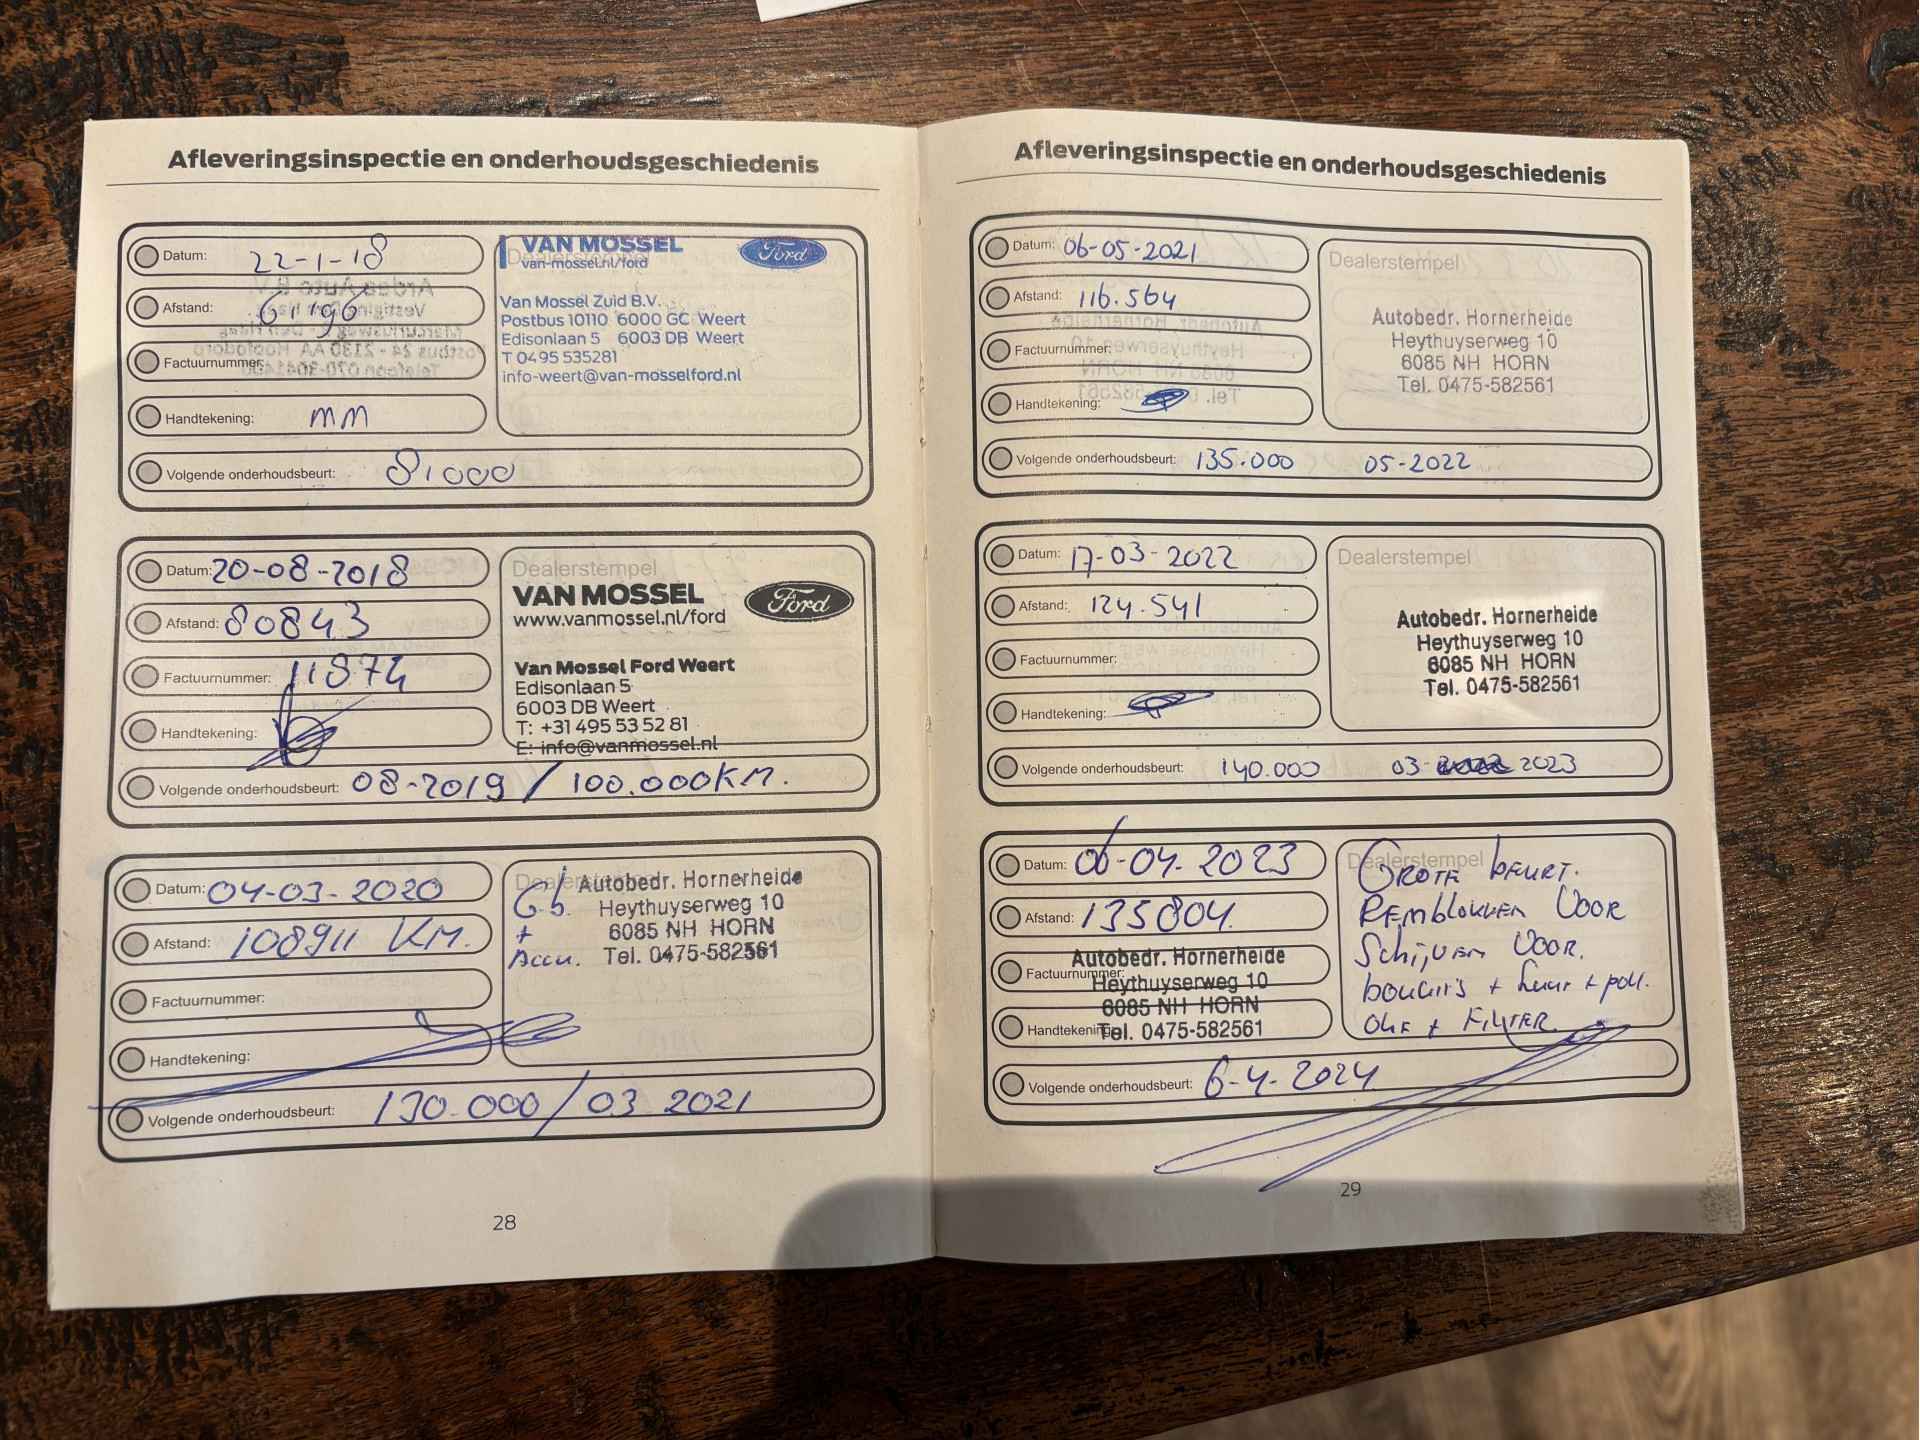 Afleveringsinspectie en onderhoudsgeschiedenis
Datum: 22-1-18
Afstand: 61196
Factuurnummer:
Handtekening: MM
Volgende onderhoudsbeurt: 81000
Dealerstempel
VAN MOSSEL
van-mossel.nl/ford
Ford
Van Mossel Zuid B.V.
Postbus 10110 6000 GC Weert
Edisonlaan 5 6003 DB Weert
T 0495 535281
info-weert@van-mosselford.nl
Datum: 20-08-2018
Afstand: 80843
Factuurnummer: 11874
Handtekening:
Volgende onderhoudsbeurt: 08-2019 / 100.000KM.
Dealerstempel
VAN MOSSEL
www.vanmossel.nl/ford
Ford
Van Mossel Ford Weert
Edisonlaan 5
6003 DB Weert
T: +31 495 53 52 81
E: info@vanmossel.nl
Datum: 04-03-2020
Afstand: 108911 KM.
Factuurnummer:
Handtekening:
Volgende onderhoudsbeurt: 130.000/03 2021
Dealerstempel
G.b.
+
Accu.
Autobedr. Hornerheide
Heythuyserweg 10
6085 NH HORN
Tel. 0475-582561
28
Afleveringsinspectie en onderhoudsgeschiedenis
Datum: 06-05-2021
Afstand: 116.564
Factuurnummer:
Handtekening:
Volgende onderhoudsbeurt: 135.000 05-2022
Dealerstempel
Autobedr. Hornerheide
Heythuyserweg 10
6085 NH HORN
Tel. 0475-582561
Datum: 17-03-2022
Afstand: 124.541
Factuurnummer:
Handtekening:
Volgende onderhoudsbeurt: 140.000 03- 2023
Dealerstempel
Autobedr. Hornerheide
Heythuyserweg 10
6085 NH HORN
Tel. 0475-582561
Datum: 06-04-2023
Afstand: 135804.
Factuurnummer:
Handtekening:
Autobedr. Hornerheide
Heythuyserweg 10
6085 NH HORN
Tel. 0475-582561
Volgende onderhoudsbeurt: 6-4-2024
Dealerstempel
GROTE beurt.
REMblokken VOOR
Schijven VOOR.
bougie's + Lucht + poll.
OLIE + FILTER.
29